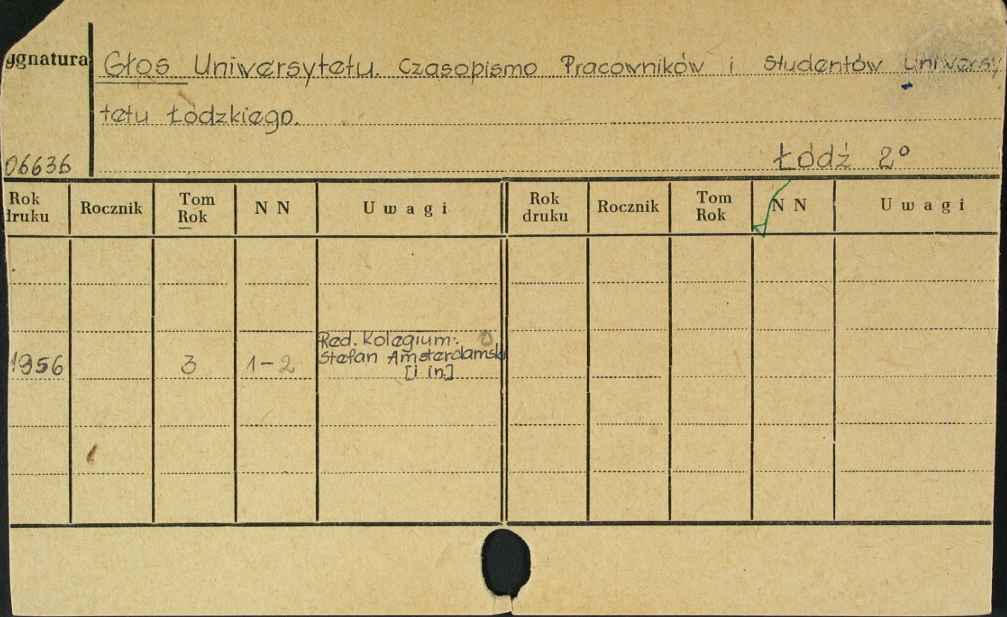 ygnatura
Głos Uniwersytetu. Czasopismo Pracowników i Studentów Uniwersy
tetu Łódzkiego.
06636
Łódź 2°
Rok druku Rocznik Tom Rok N N Uwagi Rok druku Rocznik Tom Rok N N Uwagi
Red. Kolegium:
1956 3 1-2 Stefan Amsterdamski
[i in.]